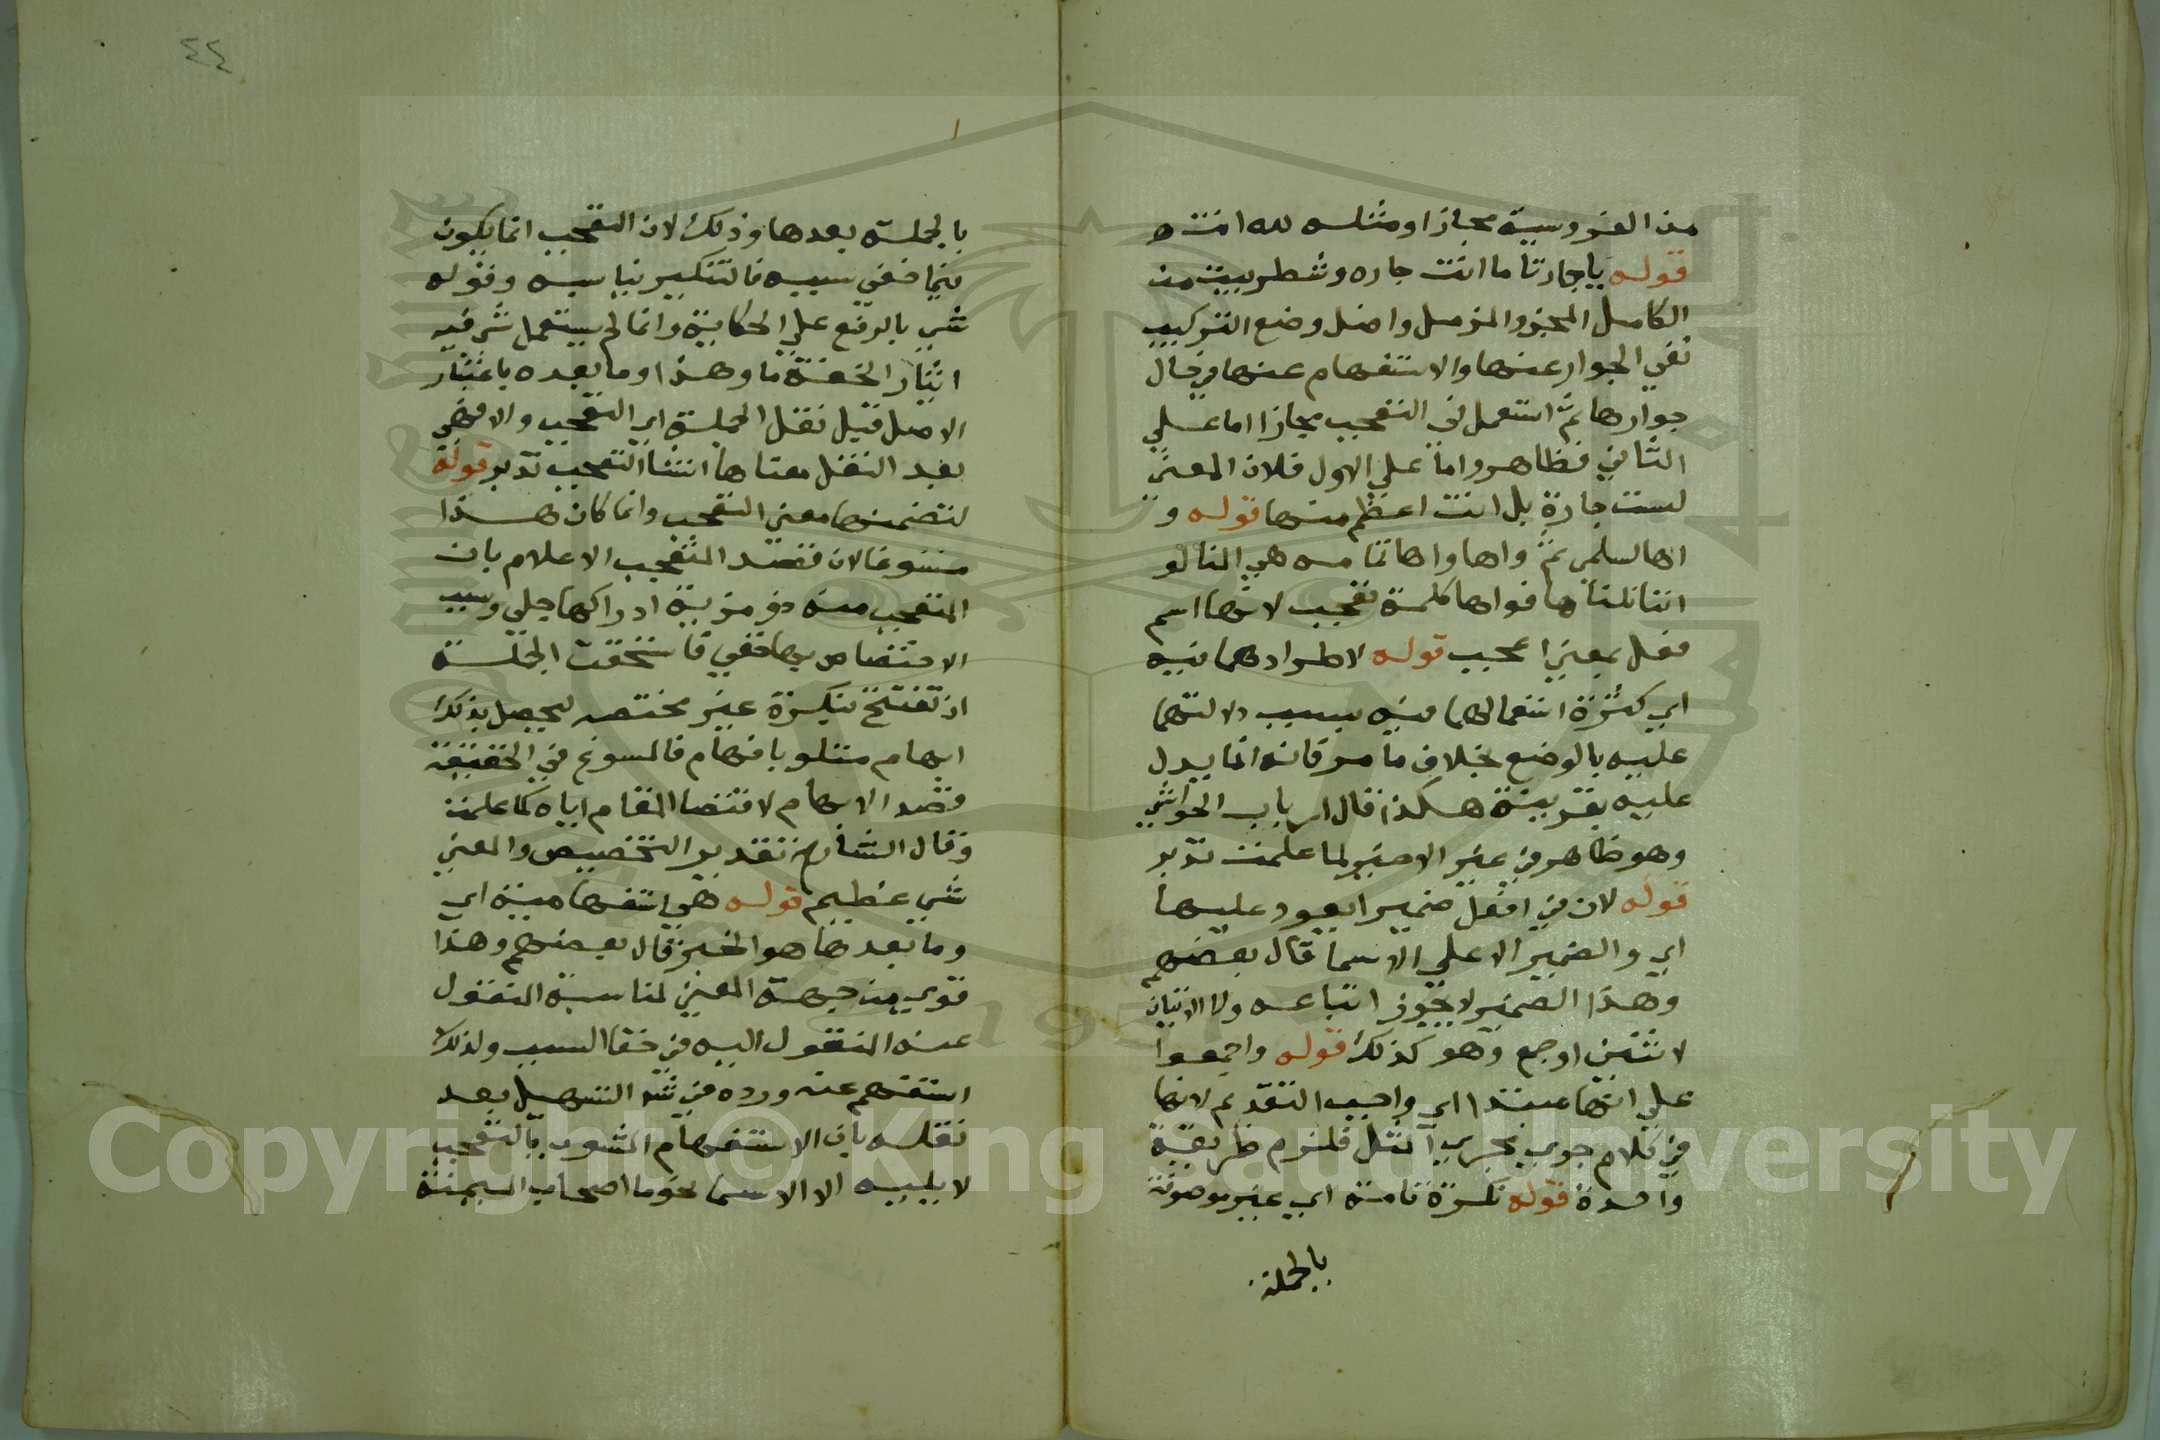 من الفروسية مجازا ومثله لله انت ه
قوله ياجارتا ما انت جاره وشطر بيت من
الكامل المجزو المرمل واصل وضع التركيب
نفي الجوار عنها والاستفهام عنها في حال
جوارها ثم استعمل في التعجب مجازا اما علي
الثاني فظاهر واما علي الاول فلان المعني
لست جارة بل انت اعظم منها قوله و
اها لسلمي ثم واها واها تمامه هي المنا لو
اننا نلناها فواها كلمة تعجب لانها اسم
فعل بمعني اعجب قوله لاطرادهما فيه
اي كثرة استعمالهما فيه بسبب دلالتهما
عليه بالوضع بخلاف ما مر فانه انما يدل
عليه بقرينة هكذا قال ارباب الحواشي
وهو ظاهر في غير الاخير لما علمت تدبر
قوله لان في افعل ضميرا يعود عليها
اي والضمير الا علي الاسما قال بعضهم
وهذا الضمير لا يجوز اتباعه ولا الاتيان
لاثنين او جمع وهو كذلك قوله واجمعوا
علي انها مبتدا اي واجب التقديم لانها
في كلام جري مجري المثل فلزم طريقة
واحدة قوله نكرة تامة اي غير موصوفة
بالجملة
٤٤
بالجملة بعدها وذلك لان التعجب انما يكون
فيما خفي سببه فالتنكير يناسبه وقوله
شي بالرفع علي الحكاية وانما لم يستعمل شي فيه
ايثار الخفة ما وهذا وما بعده باعتبار
الاصل قبل نقل الجملة الي التعجب والا فهي
بعد النقل معناها انشا التعجب تدبر قوله
لتضمنها معني التعجب وانما كان هذا
مسوغا لان قصد المتعجب الاعلام بان
المتعجب منه ذو مزية ادراكها جلي وسبب
الاختصاص بها خفي فاستحقت الجملة
ان تفتتح بنكرة غير مختصه ليحصل بذلك
ابهام متلو بافهام فالمسوغ في الحقيقة
قصد الابهام لاقتضا المقام اياه كما علمت
وقال الشارح تقدير التخصيص والمعني
شي عظيم قوله هي استفهامية اي
وما بعدها هو الخبر قال بعضهم وهذا
قوي من جهة المعني لمناسبة المنقول
عنه المنقول اليه في خفا السبب ولذلك
استفهم عنه ورده في شد التسهيل بعد
نقله بان الاستفهام المشوب بالتعجب
لا يليه الا الاسما نحو ما اصحاب اليمين